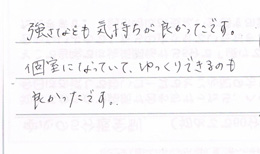 強さなども気持ちが良かったです。
個室になっていて、ゆっくりできるのも
良かったです。